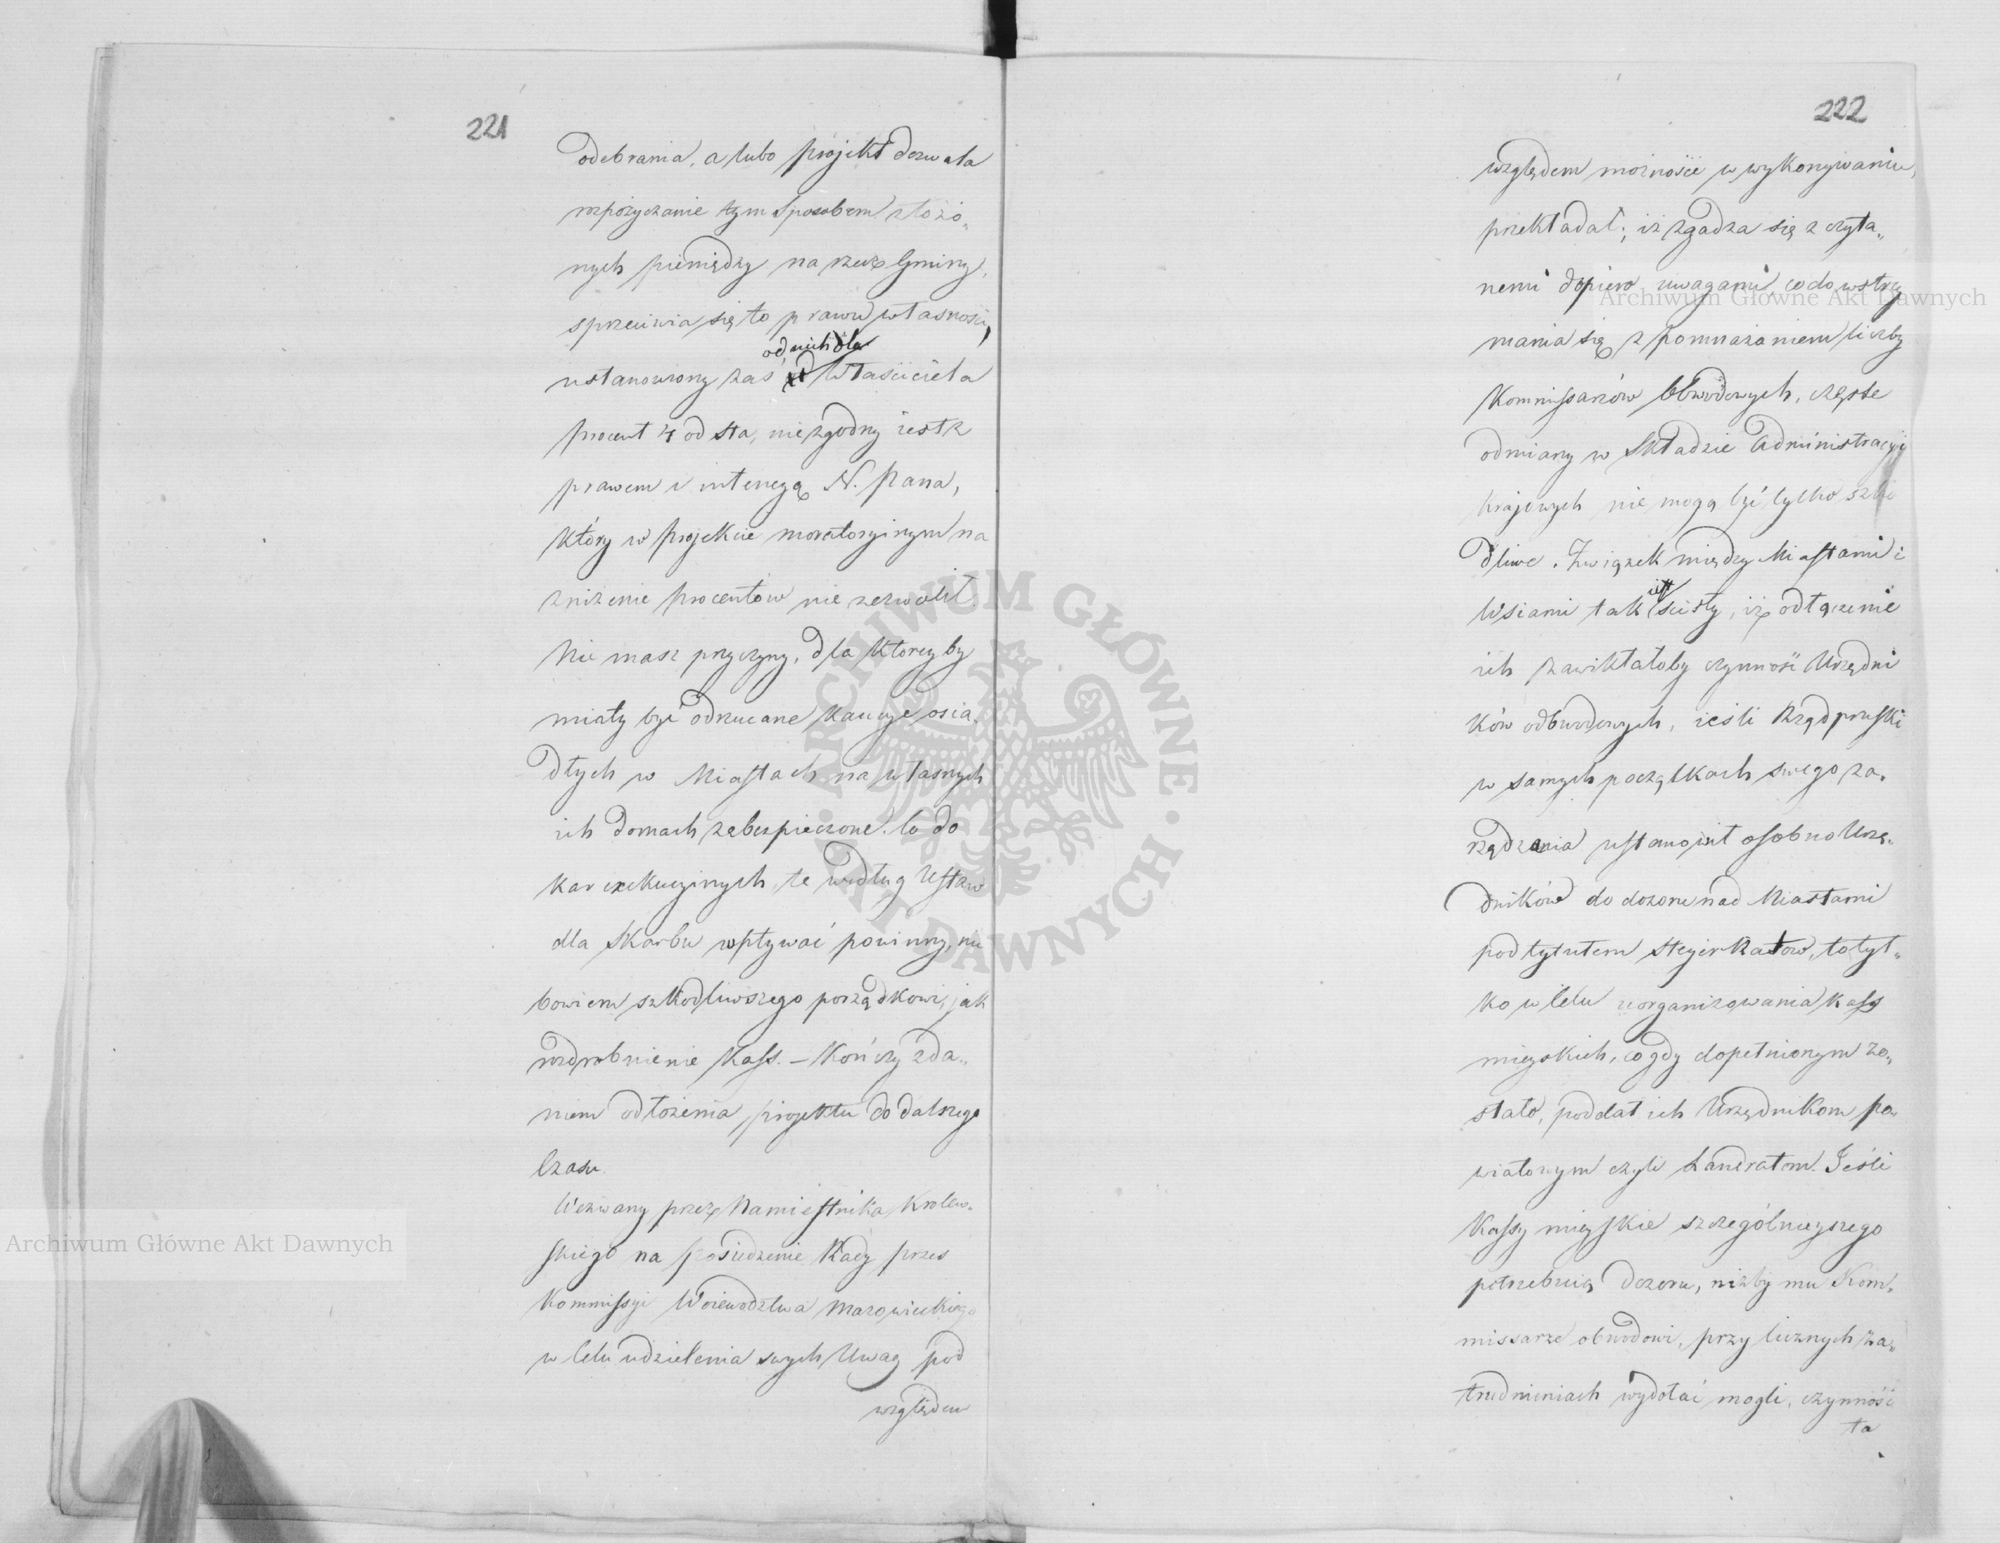 221
odebrania, a lubo projekt dozwala
rozpożyczanie tym sposobem złożo„
nych pieniędzy na rzecz Gminy,
sprzeciwia się to prawu własności,
od nich dla
ustanowiony zaś właściciela
procent 4 od sta, niezgodny iest z
prawem i intencyą N. Pana,
który w projekcie moratoryinym na
zniżenie procentów nie zezwolił.
Nie masz przyczyny, dla którey by
miały być odrzucane kaucye osia„
dłych w Miastach na własnych
ich domach zabezpieczone. Co do
kar exekucyinych, te według Ustaw
dla Skarbu wpływać powinny, nic
bowiem szkodliwszego porządkowi, jak
rozdrobnienie Kass. – Kończy zda„
niem odłożenia projektu do dalszego
Czasu.
Wezwany przez Namiestnika Krolew„
skiego na posiedzenie Rady prezes
Kommissyi Woiewodztwa Mazowieckiego
w Celu udzielenia swych Uwag pod
względem
222
względem możności w wykonywaniu,
przekładał; iż zgadza się z czyta„
nemi dopiero uwagami, co do wstrzy
mania się z pomnażaniem liczby
Kommissarzów Obwodowych, częste
odmiany w Składzie Administracyi
krajowych nie mogą być tylko szko
dliwe. Związek między Miastami i
iest
Wsiami tak scisły, iż odłączenie
ich zawikłałoby czynność Urzędni
ków odbwodowych, ieśli Rząd pruski
w samych początkach swego za„
rządzania ustanowił osobno Urzę„
dników do dozoru nad Miastami
pod tytułem Steyer Ratow, to tyl„
ko w Celu zorganizowania kass
mieyskich, co gdy dopełnionym zo„
stało, poddał ich Urzędnikom po„
wiatowym czyli Landratom. Jeśli
Kassy mieyskie szczególnieyszego
potrzebuią dozoru, niżby mu Kom„
missarze obwodowi, przy licznych za„
trudnieniach wydołać mogli, czynność
ta
Archiwum Główne Akt Dawnych
Archiwum Główne Akt Dawnych
ARCHIWUM GŁÓWNE AKT DAWNYCH